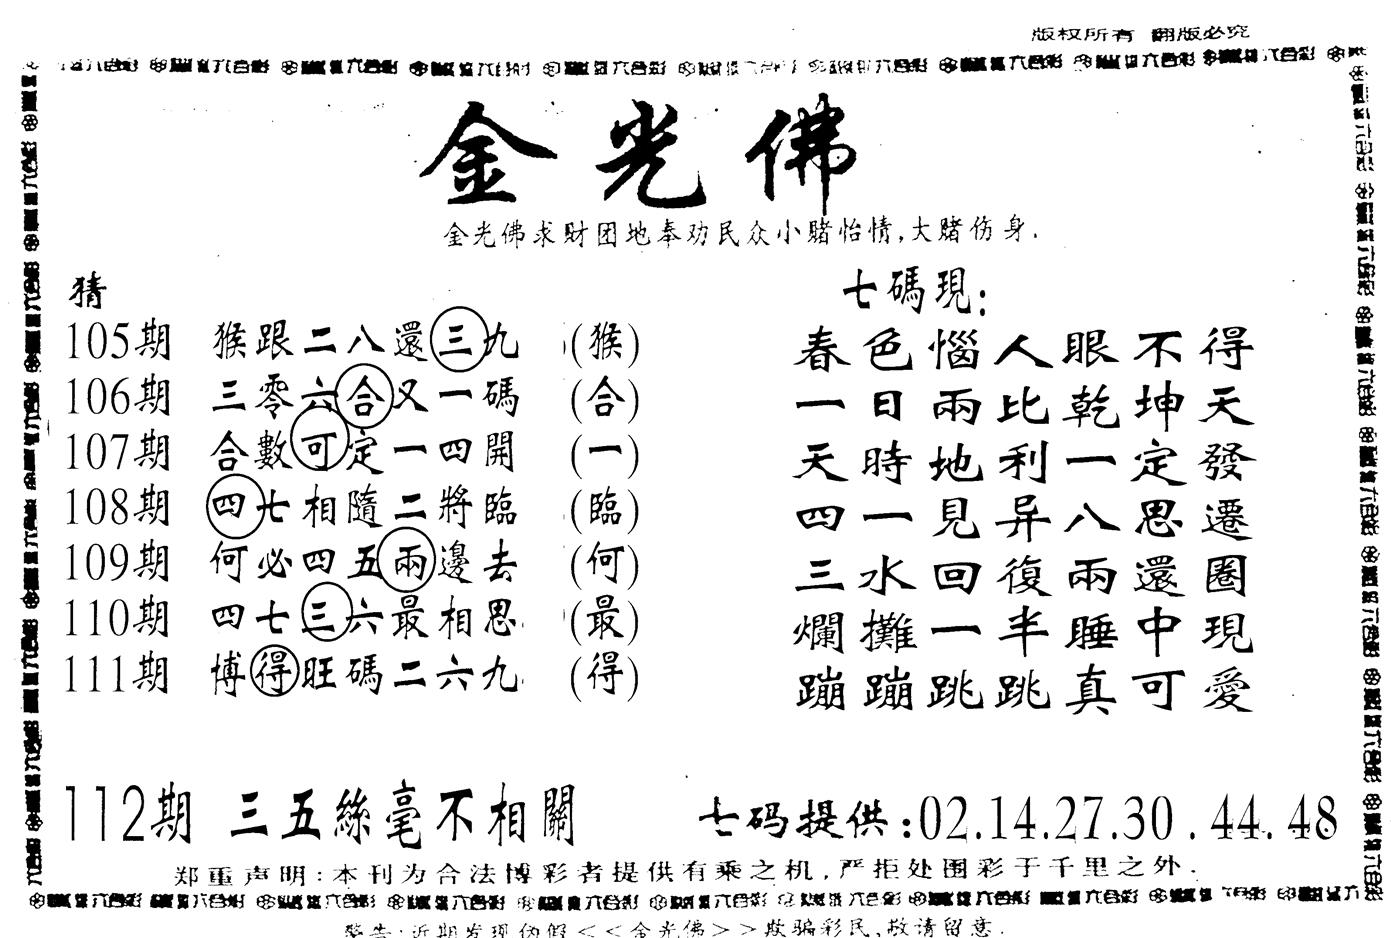 版权所有 翻版必究
金光佛
金光佛求财团地奉劝民众小赌怡情,大赌伤身.
猜
105期 猴跟二八還三九 (猴)
106期 三零六合又一碼 (合)
107期 合數可定一四開 (一)
108期 四七相隨二將臨 (臨)
109期 何必四五兩邊去 (何)
110期 四七三六最相思 (最)
111期 博得旺碼二六九 (得)
七碼現:
春色惱人眼不得
一日兩比乾坤天
天時地利一定發
四一見异八思遷
三水回復兩還圈
爛攤一半睡中現
蹦蹦跳跳真可愛
112期 三五絲毫不相關
七码提供:02.14.27.30.44.48
郑重声明:本刊为合法博彩者提供有乘之机,严拒处围彩于千里之外.
警告:近期发现伪假<<金光佛>>欺骗彩民,敬请留意.